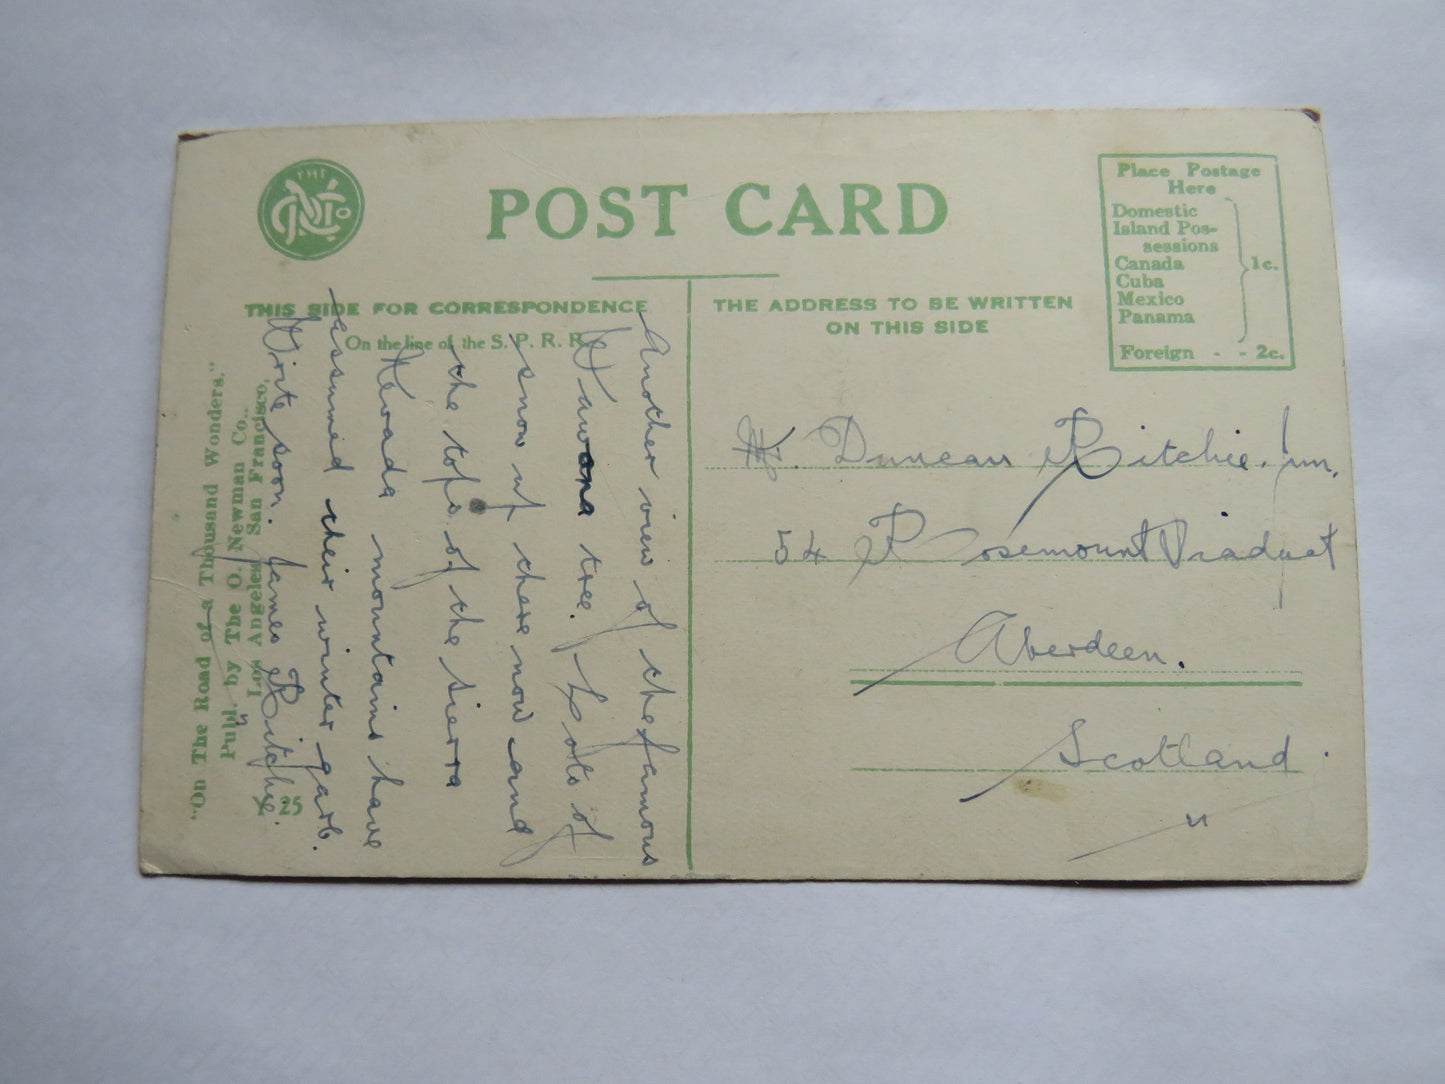 THE
NCo
POST CARD
Place Postage
Here
Domestic
Island Pos-
sessions
Canada
Cuba
Mexico
Panama
1c.
Foreign - - 2c.
THIS SIDE FOR CORRESPONDENCE
On the line of the S. P. R. R.
THE ADDRESS TO BE WRITTEN
ON THIS SIDE
Another view of the famous
Wawona tree. Lots of
snow up there now and
the tops of the Sierra
Nevada mountains have
assumed their winter garb.
Write soon. James Ritchie.
"On The Road of a Thousand Wonders."
Publ. by The O. Newman Co.,
Los Angeles, San Francisco.
X 25
Duncan Ritchie. Jun.
54 Rosemount Viaduct
Aberdeen.
Scotland.
"